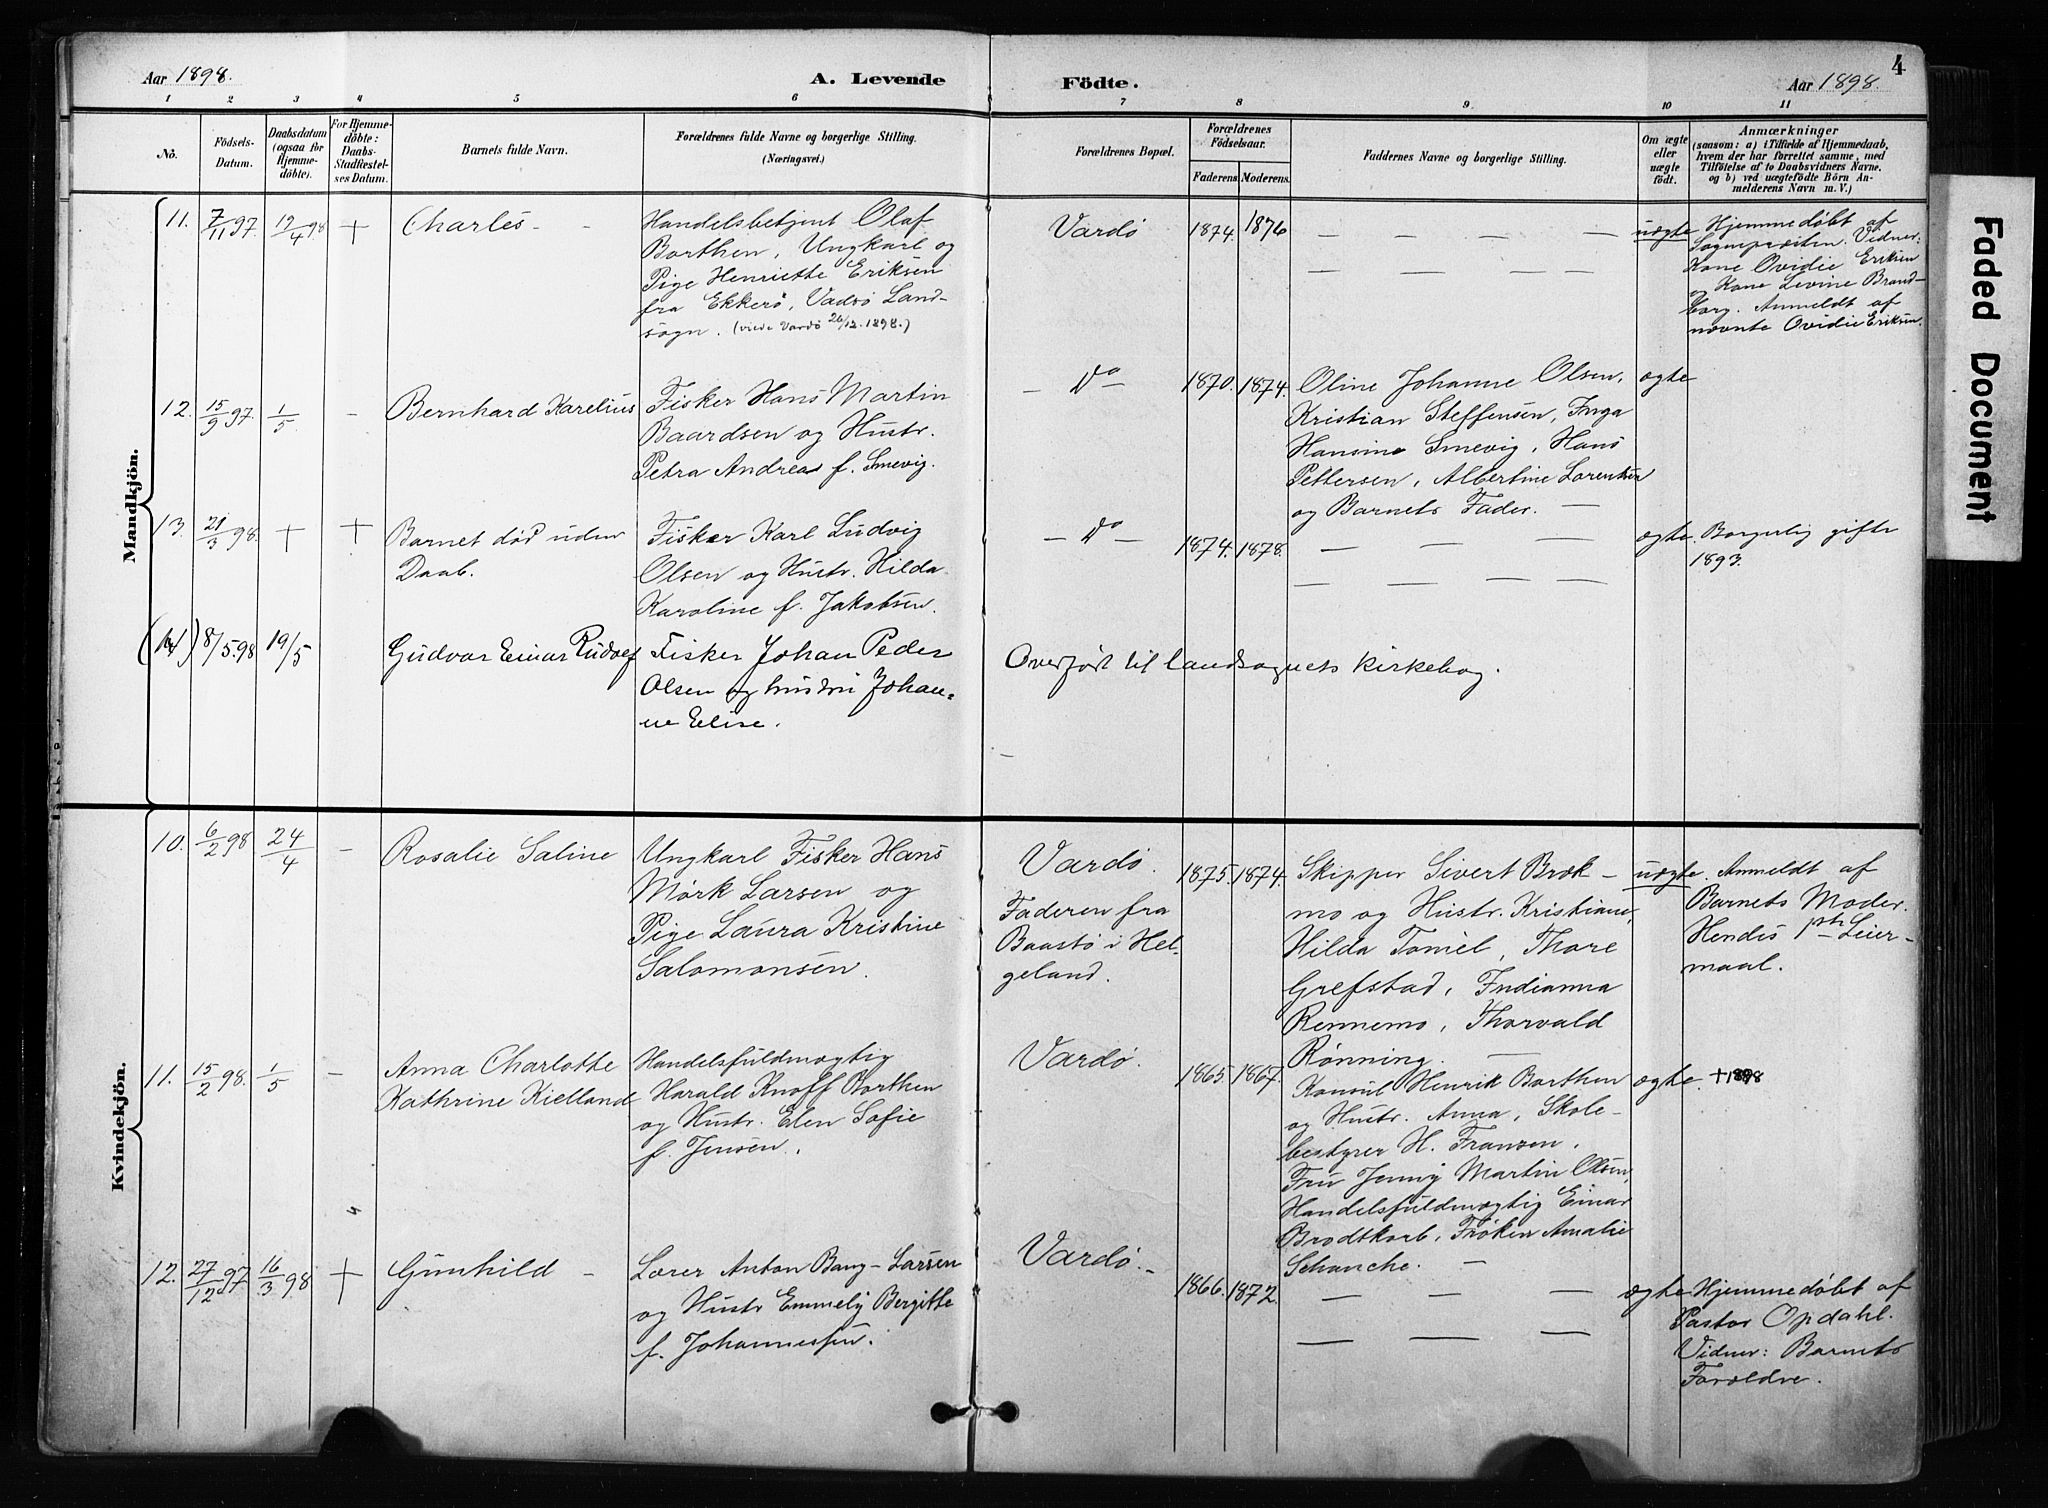 Aar 1898.
A. Levende Födte.
Aar 1898.
4
1 2 3 4 5 6 7 8 9 10 11
No.
Födsels-Datum.
Daabsdatum (ogsaa for Hjemme-döbte).
For Hjemme-döbte: Daabs-Stadfæstel-ses Datum.
Barnets fulde Navn.
Forældrenes fulde Navne og borgerlige Stilling.
(Næringsvei.)
Forældrenes Bopæl.
Forældrenes Födselsaar.
Faderens. Moderens.
Faddernes Navne og borgerlige Stilling.
Om ægte eller uægte födt.
Anmærkninger
(saasom: a) i Tilfælde af Hjemmedaab,
hvem der har forrettet samme, med
Tilföielse af to Daabsvidners Navne.
og b) ved uægtefödte Börn An-
melderens Navn m. V.)
Mandkjön.
11. 7/11 97. 12/4 98 +
Charles -
Handelsbetjent Olaf
Borthen, Ungkarl og
Pige Henriette Eriksen
fra Ekkerö, Vadsö Land-
sogn. (viede Vardö 26/12. 1898.)
Vardö
1874. 1876
— — — —
— — — —
uægte
Hjemmedöbt af
Sognepresten. Vidner:
Kone Ovidie Eriksen
og Kone Levine Brand-
borg. Anmeldt af
nævnte Ovidie Eriksen.
12. 15/9 97. 1/5 -
Bernhard Karelius
Fisker Hans Martin
Baardsen og Hustr.
Petra Andrea f. Smevig.
— Do —
1870. 1874.
Oline Johanne Olsen,
Kristian Steffensen, Inga
Hansine Smevig, Hans
Pettersen, Albertine Lorentsen
og Barnets Fader. —
ægte
13. 21/3 98. + +
Barnet död uden
Daab.
Fisker Karl Ludvig
Olsen og Hustr. Hilda
Karoline f. Jakobsen.
— Do —
1874. 1878.
— — — —
— — — —
ægte.
Borgerlig gifte
1893.
(14) 8/5.98 19/5
Gudvar Einar Rudolf
Fisker Johan Peder
Olsen og hustru Johan-
ne Elise.
Overfört til landsognets kirkebog.
Kvindekjön.
10. 6/2 98 24/4 -
Rosalie Saline
Ungkarl Fisker Hans
Mörk Larsen og
Pige Laura Kristine
Salomonsen.
Vardö.
Faderen fra
Baastö i Hel-
geland.
1875. 1874.
Skipper Sivert Bræk-
mo og Hustr. Kristiane,
Hilda Tomel, Thore
Grefstad, Indianna
Rennemo, Thorvald
Rönning. —
uægte.
Anmeldt af
Barnets Moder.
Hendes 1ste Leier-
maal.
11. 15/2 98. 1/5 -
Anna Charlotte
Kathrine Kielland
Handelsfuldmægtig
Harald Knoff Borthen
og Hustr. Elen Sofie
f. Jensen.
Vardö.
1865. 1867.
Konsul Henrik Borthen
og Hustr. Anna, Skole-
bestyrer H. Franzen,
Fru Jenny Martin Olsen,
Handelsfuldmægtig Einar
Brodtkorb, Fröken Amalie
Schanche. —
ægte.
+ 1898
12. 27/12 97 16/3 98 +
Gunhild -
Lærer Anton Bang-Larsen
og Hustr Emmely Bergitte
f. Johannessen.
Vardö. -
1866. 1872.
— — —
— — —
ægte
Hjemmedöbt af
Pastor Opdahl.
Vidner: Barnets
Forældre.
Faded Document